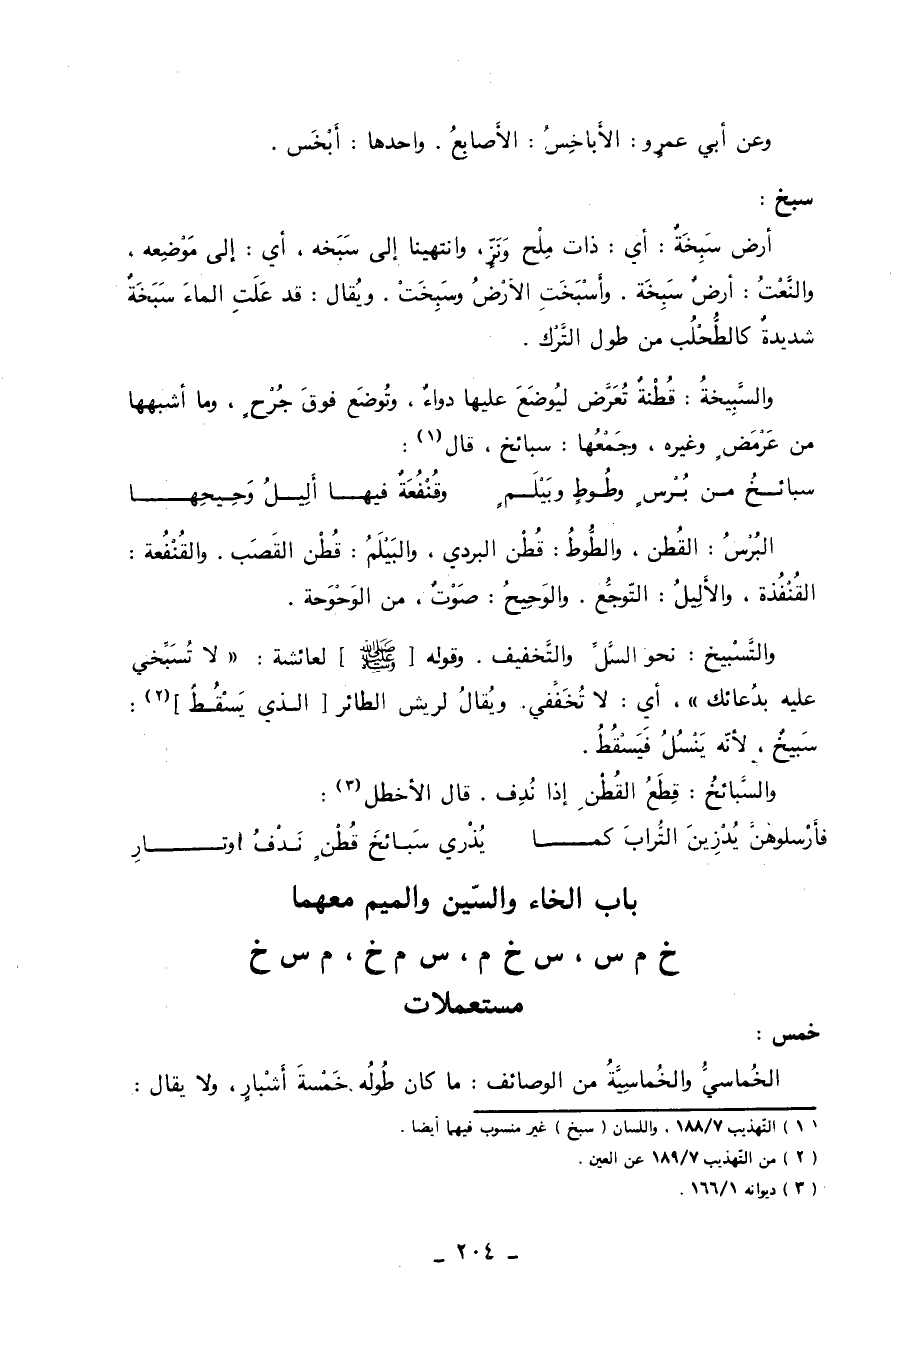 وعن أبي عمرٍو : الأَباخِسُ : الأَصابعُ . واحدها : أَبْخَس .
سبخ :
أرض سَبِخَةٌ : أي : ذات مِلْح وَنَزٍّ، وانتهينا إلى سَبَخه ، أي : إلى مَوْضِعه ،
والنَّعْتُ : أرضٌ سَبِخَة . وأَسْبَخَتِ الأرْضُ وسَبِخَتْ . ويُقال : قد عَلَتِ الماءَ سَبَخَةٌ
شديدةٌ كالطُّحْلُب من طول التَّرْك .
والسَّبِيخةُ : قُطْنةٌ تُعَرَّض ليُوضَعَ عليها دواءٌ ، وتُوضَع فوقَ جُرْحٍ ، وما أشبهها
من عَرْمَضٍ وغيره ، وجَمْعُها : سبائخ ، قال(١) :
سبائـخُ مـن بُـرْسٍ وطُـوطٍ وبَيْلَـمٍ وقُنْفُعَةٌ فيهـا أَلِيـلُ وَحِيحِهـا
البُرْسُ : القُطن ، والطُّوطُ : قُطْن البردي ، والبَيْلَمُ : قُطْن القَصَب . والقُنْفُعة :
القُنْفُذة ، والأَلِيلُ : التّوجُّع . والوَحِيحُ : صَوْتٌ ، من الوَحْوَحة .
والتَّسْبِيخ : نحو السَّلِّ والتَّخفيف . وقوله [ ﷺ ] لعائشة : « لا تُسَبِّخي
عليه بدُعائك » ، أي : لا تُخَفِّفي. ويُقالُ لريش الطائر [ الـذي يَسْقُـطُ ](٢) :
سَبِيخٌ ، لأنّه يَنْسُلُ فَيَسْقُطُ .
والسَّبائخُ : قِطَعُ القُطْنِ إذا نُدِف . قال الأخطل(٣) :
فأَرْسلوهنَّ يُذْرِينَ التُّرابَ كمـا يُذْري سَبـائخَ قُطْنٍ نَـدْفُ اوتـارِ
باب الخاء والسّين والميم معهما
خ م س ، س خ م ، س م خ ، م س خ
مستعملات
خمس :
الخُماسيُّ والخُماسِيَّةُ من الوصائف : ما كان طُولُه خَمْسةَ أَشْبارٍ ، ولا يقال :
( ١ ) التّهذيب ١٨٨/٧ ، واللسان ( سبخ ) غير منسوب فيهما أيضا .
( ٢ ) من التّهذيب ١٨٩/٧ عن العين .
( ٣ ) ديوانه ١٦٦/١ .
ـ ٢٠٤ ـ